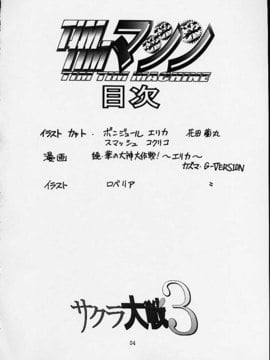 TIM TIM マシン
TIM TIM MACHINE
目次
イラスト カット・ ボンジュール エリカ 花田
スマッシュ コクリコ
漫画 の大神大作戦! 〜エリカ〜
カズマ・G-VERSION
イラスト ロベリア 〃
サクラ大戦3
04